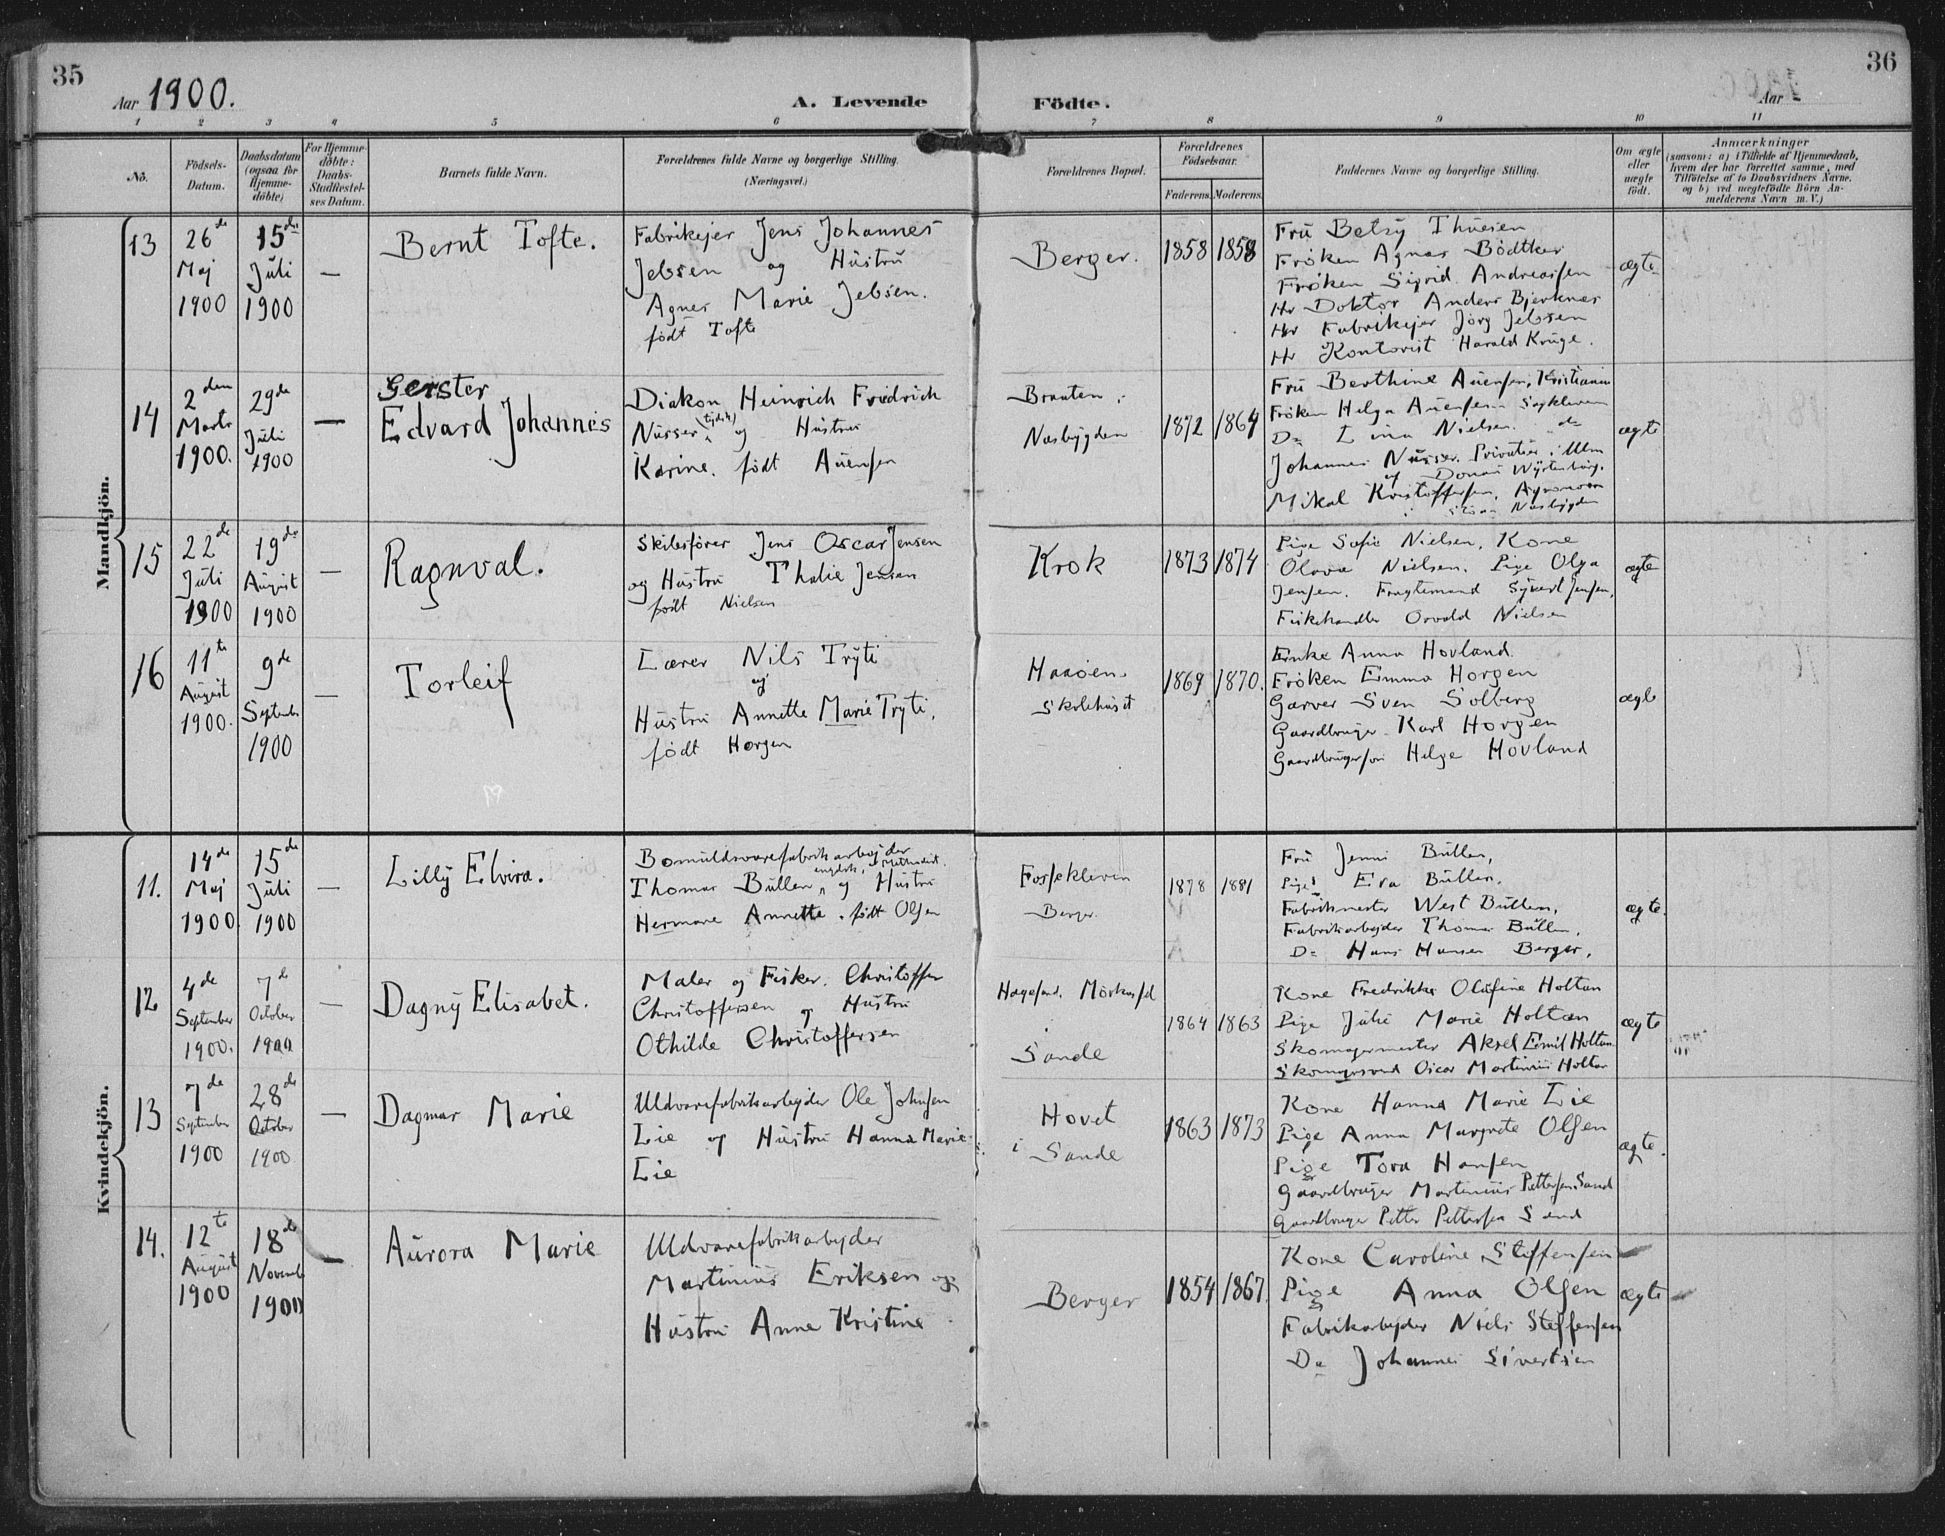 35
Aar 1900.
A. Levende
Födte.
Aar
36
1 2 3 4 5 6 7 8 9 10 11
No.
Födsels-
Datum.
Daabsdatum
(ogsaa for
Hjemme-
döbte)
For Hjemme-
döbte:
Daabs-
Stadfæstel-
ses Datum.
Barnets fulde Navn.
Forældrenes fulde Navne og borgerlige Stilling.
(Næringsvei.)
Forældrenes Bopæl.
Forældrenes
Födselsaar.
Faderens. Moderens.
Faddernes Navne og borgerlige Stilling.
Om ægte
eller
uægte
födt.
Anmærkninger
(saasom: a) i Tilfælde af Hjemmedaab,
hvem der har forrettet samme, med
Tilföielse af to Daabsvidners Navne,
og b) ved uægtefödte Börn An-
melderens Navn m. V.)
Mandkjön.
13
26de
Maj
1900
15de
Juli
1900
—
Bernt Tofte.
Fabrikejer Jens Johannes
Jebsen og Hustru
Agnes Marie Jebsen.
født Tofte
Berger.
1858 1858
Fru Betsy Thuesen
Frøken Agnes Bödtker
Frøken Sigrid Andreassen
Hr Doktor Anders Bjerknes
Hr Fabrikejer Jörg Jebsen
Hr Kontorist Harald Kruge.
ægte
14
2den
Marts
1900.
29de
Juli
1900
—
Gerster
Edvard Johannes
Diakon Heinrich Friedrich
Nusser (tydsk) og Hustru
Karine. født Auensen
Braaten i
Næsbygden
1872 1864
Fru Berthine Auensen, Kristiania
Frøken Helga Auensen
Do Lina Nielsen. do
Johannes Nusser. Privatier i Ulm
af Donau Würtenburg.
Mikal Kristoffersen, Agronom
Næsbygden
ægte
15
22de
Juli
1900
19de
August
1900
—
Ragnval.
Skibsfører Jens Oscar Jensen
og Hustru Thalie Jensen
født Nielsen
Krok
1873 1874
Pige Sofie Nielsen, Kone
Olava Nielsen. Pige Olga
Jensen. Fragtemand Sykert Jensen,
Fiskehandler Osvald Nielsen
ægte
16
11te
August
1900.
9de
September
1900
—
Torleif
Lærer Nils Tryti
og
Hustru Annette Marie Tryti,
født Horgen
Haaøen
Skolehuset
1869 1870.
Enke Anna Hovland
Frøken Emma Horgen
Garver Sven Solberg
Gaardbruger Karl Horgen
Gaardbrugersøn Helge Hovland
ægte
Kvindekjön.
11.
14de
Maj
1900.
15de
Juli
1900
—
Lilly Elvira.
Bomuldsvarefabrikarbejder
engelsk, Methodist.
Thomas Bullen og Hustru
Hermane Annette. født Olsen
Fossekleven
Berger.
1878 1881
Fru Jenni Bullen,
Pige Eva Bullen.
Fabrikmester West Bullen,
Fabrikarbejder Thomas Bullen,
Do Hans Hansen Berger,
ægte.
12
4de
September
1900.
7de
October
1900
—
Dagny Elisabet.
Maler og Fisker. Christoffer
Christoffersen og Hustru
Othilde Christoffersen
Sande
1864 1863
Kone Fredrikke Olufine Holtan
Pige Julie Marie Holtan
Skomagermester Aksel Emil Holtan
Skomagersvend Oscar Martinius Holtan
ægte
13
7de
September
1900
28de
October
1900
—
Dagmar Marie
Uldvarefabriksarbejder Ole Johnsen
Lie og Hustru Hanna Marie
Lie
Hovet
i Sande
1863 1873
Kone Hanna Marie Lie
Pige Anna Margrete Olsen
Pige Tora Hansen
Gaardbruger Martinius Pettersen Sand
Gaardbruger Petter Pettersen Sand
ægte.
14.
12te
August
1900
18de
Novemb
1900
—
Aurora Marie
Uldvarefabrikarbejder
Martinius Eriksen og
Hustru Anne Kristine
Berger
1854 1867.
Kone Caroline Steffensen
Pige Anna Olsen
Fabrikarbejder Niels Steffensen
Do Johannes Sivertsen
ægte